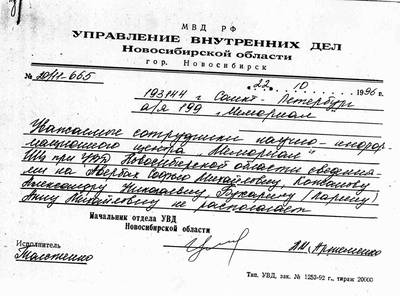 МВД РФ
УПРАВЛЕНИЕ ВНУТРЕННИХ ДЕЛ
Новосибирской области
гор. Новосибирск
№ 20/11-665
22. 10 1996 г.
193144 г. Санкт-Петербург
а/я 199 „Мемориал"
Уважаемые сотрудники научно-инфор-
мационного центра „Мемориал"
ИЦ при УВД Новосибирской области сведения-
ми на Авербах Софью Михайловну,
Александру Николаевну, Бухарину (Ларину)
Анну Михайловну не располагает
Начальник отдела УВД
Новосибирской области
Исполнитель
Тип. УВД, зак. № 1253-92 г., тираж 20000